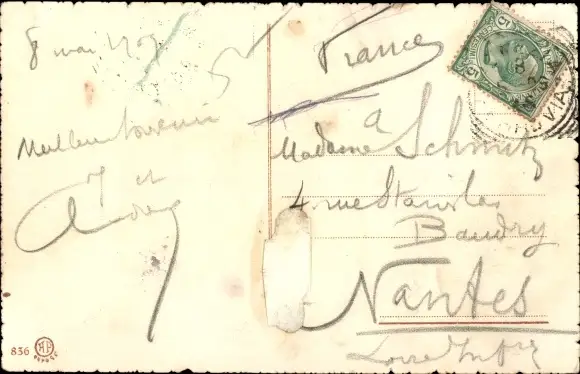 8 mai 1909
Meilleur souvenir
France
a
Madame Schmitz
4 rue Stanislas
Baudry
Nantes
Loire Infre
836